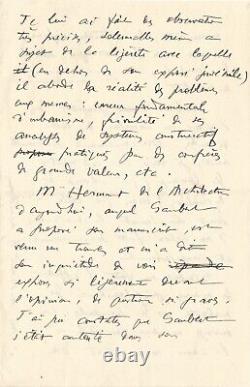 Je lui ai fait des observations
très précises, solennelles même au
sujet de la légèreté avec laquelle
il (en dehors de son exposé
il aborde la réalité des problèmes
eux mêmes : erreur fondamentale
d'urbanisme, frivolité de ses
analyses de systèmes constructifs
pratiqués par des confrères
de grande valeur, etc.
Mr Hermant de l'Architecture
d'aujourd'hui, auquel Gaubert
a proposé son manuscrit, est
venu me trouver et m'a dit
son inquiétude de voir
exposés si légèrement devant
l'opinion, de questions si graves.
J'ai pu constater que Gaubert
s'était contenté dans son